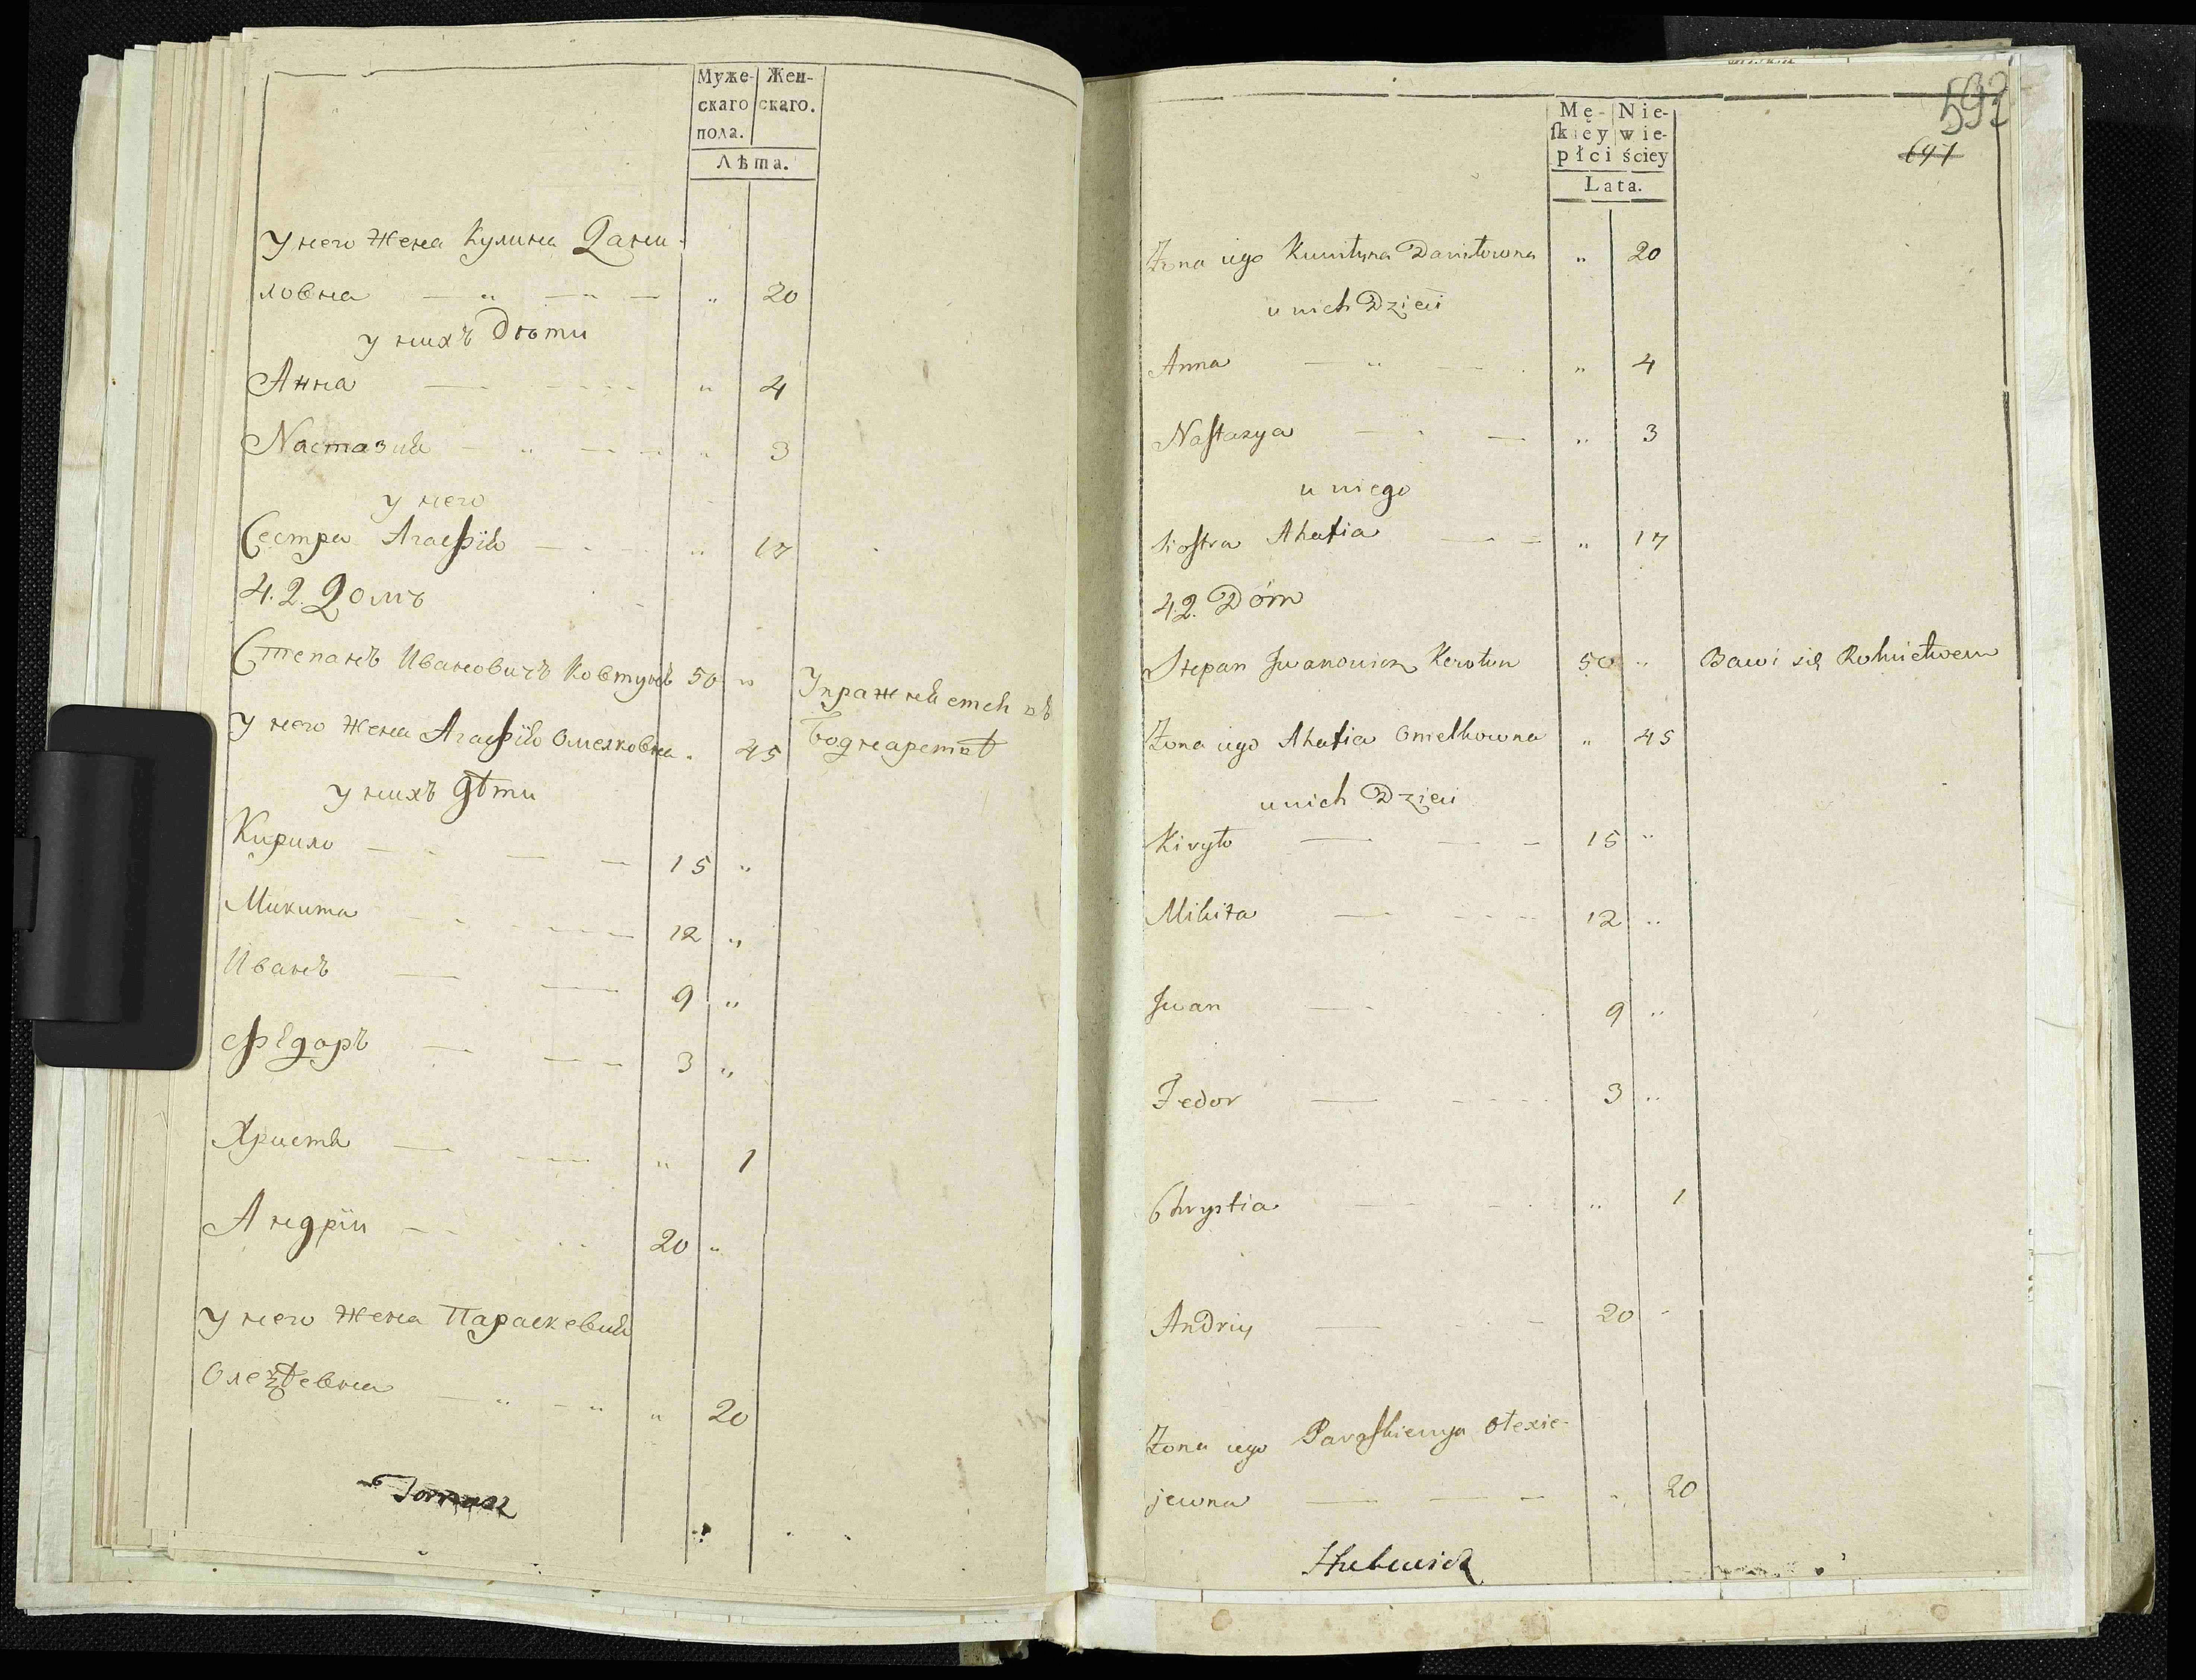 Муже- Жен-
скаго скаго.
пола.
Лѣта.
У него Жена Кулина Дани-
ловна — „ — „ — „ 20
у нихъ Дѣти
Анна — — „ 4
Настазия — „ — „ 3
у него
Сестра Агафiя — „ 17
4.2. Домъ
Степанъ Ивановичъ Ковтунъ 50 „ Упражняется въ
у него Жена Агафiя Омелковна „ 45
у нихъ дѣти
Кирило — — — 15 „
Микита — 12 „
Иванъ — — 9 „
Федоръ — — 3 „
Христя — — „ 1
Андрiи — 20 „
У него Жена Параскевия
Олеѯѣевна — „ — „ „ 20
Tomasz
592
647
Mę- Nie-
ſkiey wie-
płci ściey
Lata.
Żona iego Kuulyna Daniłowna „ 20
u nich Dzieci
Anna — „ — „ 4
Naſtazya — — „ 3
u niego
Siostra Ahafia — — „ 17
4.2. Dóm
Stepan Iwanowicz Kowtun 50 „ Bawi się Rolnictwem
Żona iego Ahafia Omelkowna „ 45
u nich Dzieci
Kiryło — — — 15 „
Mikita — — 12 „
Iwan — 9 „
Fedor — — 3 „
Chrystia — — „ 1
Andriy — — 20 „
Żona iego Paraſkiewya Ołexie-
jewna — — — „ 20